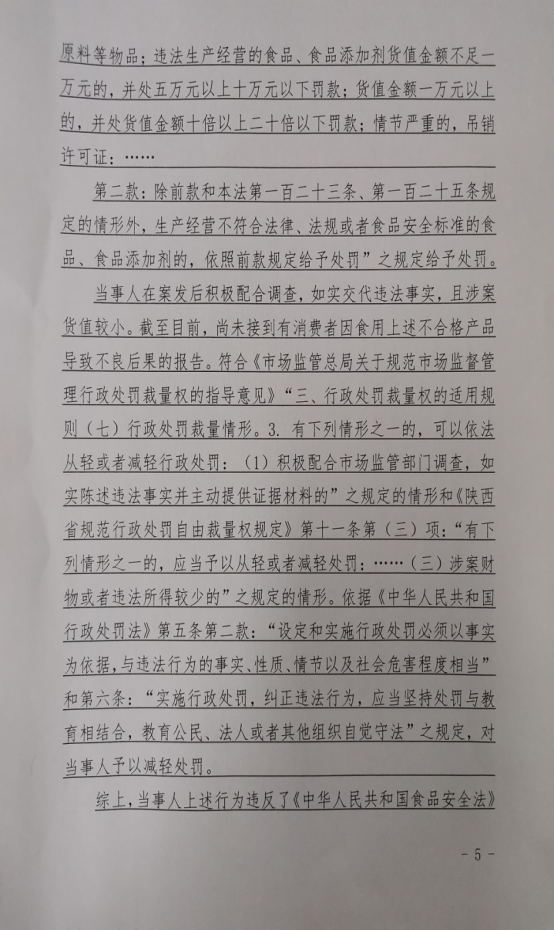 原料等物品；违法生产经营的食品、食品添加剂货值金额不足一
万元的，并处五万元以上十万元以下罚款；货值金额一万元以上
的，并处货值金额十倍以上二十倍以下罚款；情节严重的，吊销
许可证：……
第二款：除前款和本法第一百二十三条、第一百二十五条规
定的情形外，生产经营不符合法律、法规或者食品安全标准的食
品、食品添加剂的，依照前款规定给予处罚”之规定给予处罚。
当事人在案发后积极配合调查，如实交代违法事实，且涉案
货值较小。截至目前，尚未接到有消费者因食用上述不合格产品
导致不良后果的报告。符合《市场监管总局关于规范市场监督管
理行政处罚裁量权的指导意见》“三、行政处罚裁量权的适用规
则（七）行政处罚裁量情形。3. 有下列情形之一的，可以依法
从轻或者减轻行政处罚：（1）积极配合市场监管部门调查，如
实陈述违法事实并主动提供证据材料的”之规定的情形和《陕西
省规范行政处罚自由裁量权规定》第十一条第（三）项：“有下
列情形之一的，应当予以从轻或者减轻处罚：……（三）涉案财
物或者违法所得较少的”之规定的情形。依据《中华人民共和国
行政处罚法》第五条第二款：“设定和实施行政处罚必须以事实
为依据，与违法行为的事实、性质、情节以及社会危害程度相当”
和第六条：“实施行政处罚，纠正违法行为，应当坚持处罚与教
育相结合，教育公民、法人或者其他组织自觉守法”之规定，对
当事人予以减轻处罚。
综上，当事人上述行为违反了《中华人民共和国食品安全法》
- 5 -